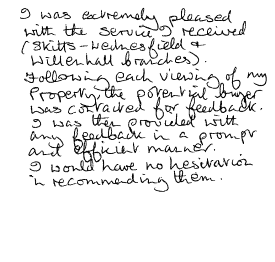 I was extremely pleased
with the service I received
(Skitts - Wednesfield &
Willenhall branches).
Following each viewing of my
Property the potential buyer
was contacted for feedback.
I was then provided with
any feedback in a prompt
and efficient manner.
I would have no hesitation
in recommending them.